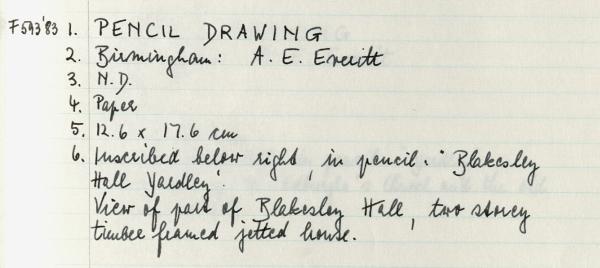 F593'83 1. PENCIL DRAWING
2. Birmingham: A. E. Everitt
3. N.D.
4. Paper
5. 12.6 x 17.6 cm
6. Inscribed below right, in pencil: 'Blakesley
Hall Yardley'.
View of part of Blakesley Hall, two storey
timber framed jetted house.